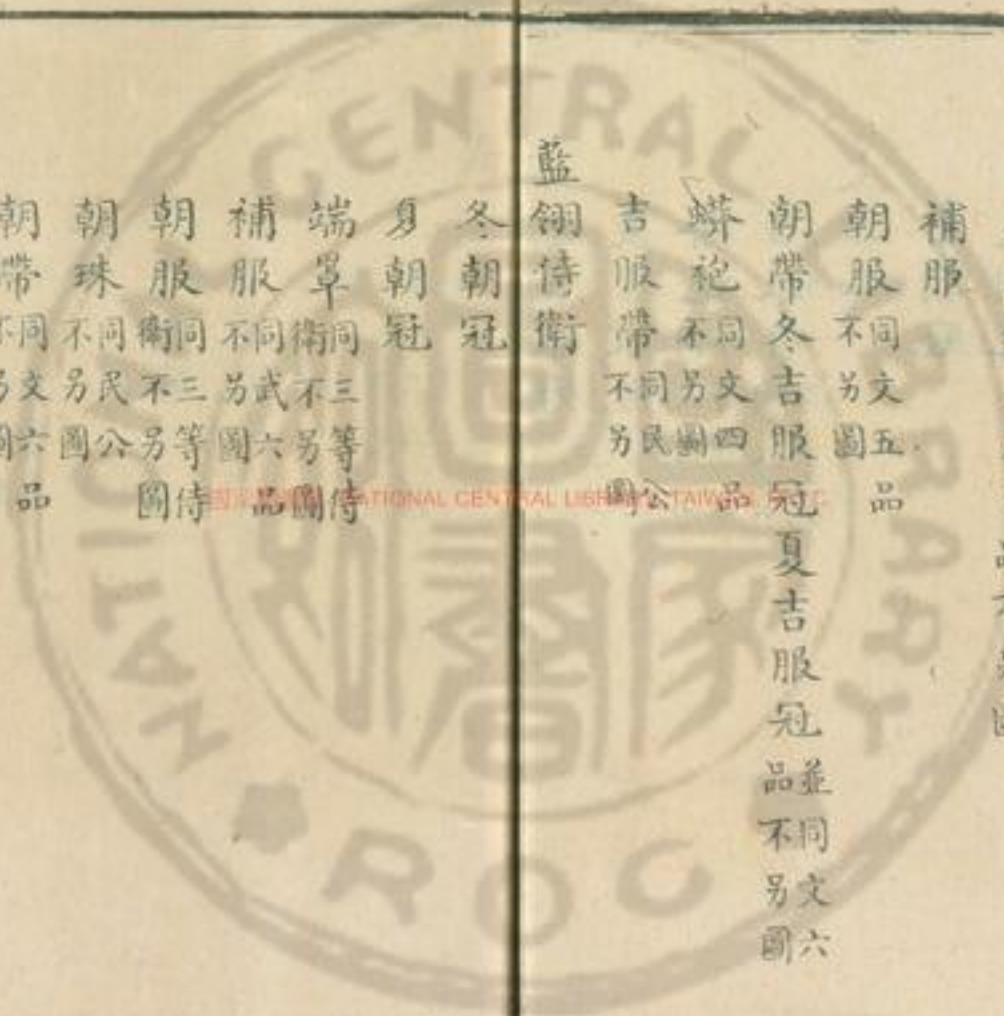 補服
朝服同文五品不另圖
朝帶冬吉服冠夏吉服冠並同文六品不另圖
蟒袍同文四品不另圖
吉服帶同民公不另圖
藍翎侍衛
冬朝冠
夏朝冠
端罩同三等侍衛不另圖
補服同武六品不另圖
朝服同三等侍衛不另圖
朝珠同民公不另圖
朝帶同文六品不另圖
NATIONAL CENTRAL LIBRARY
ROC